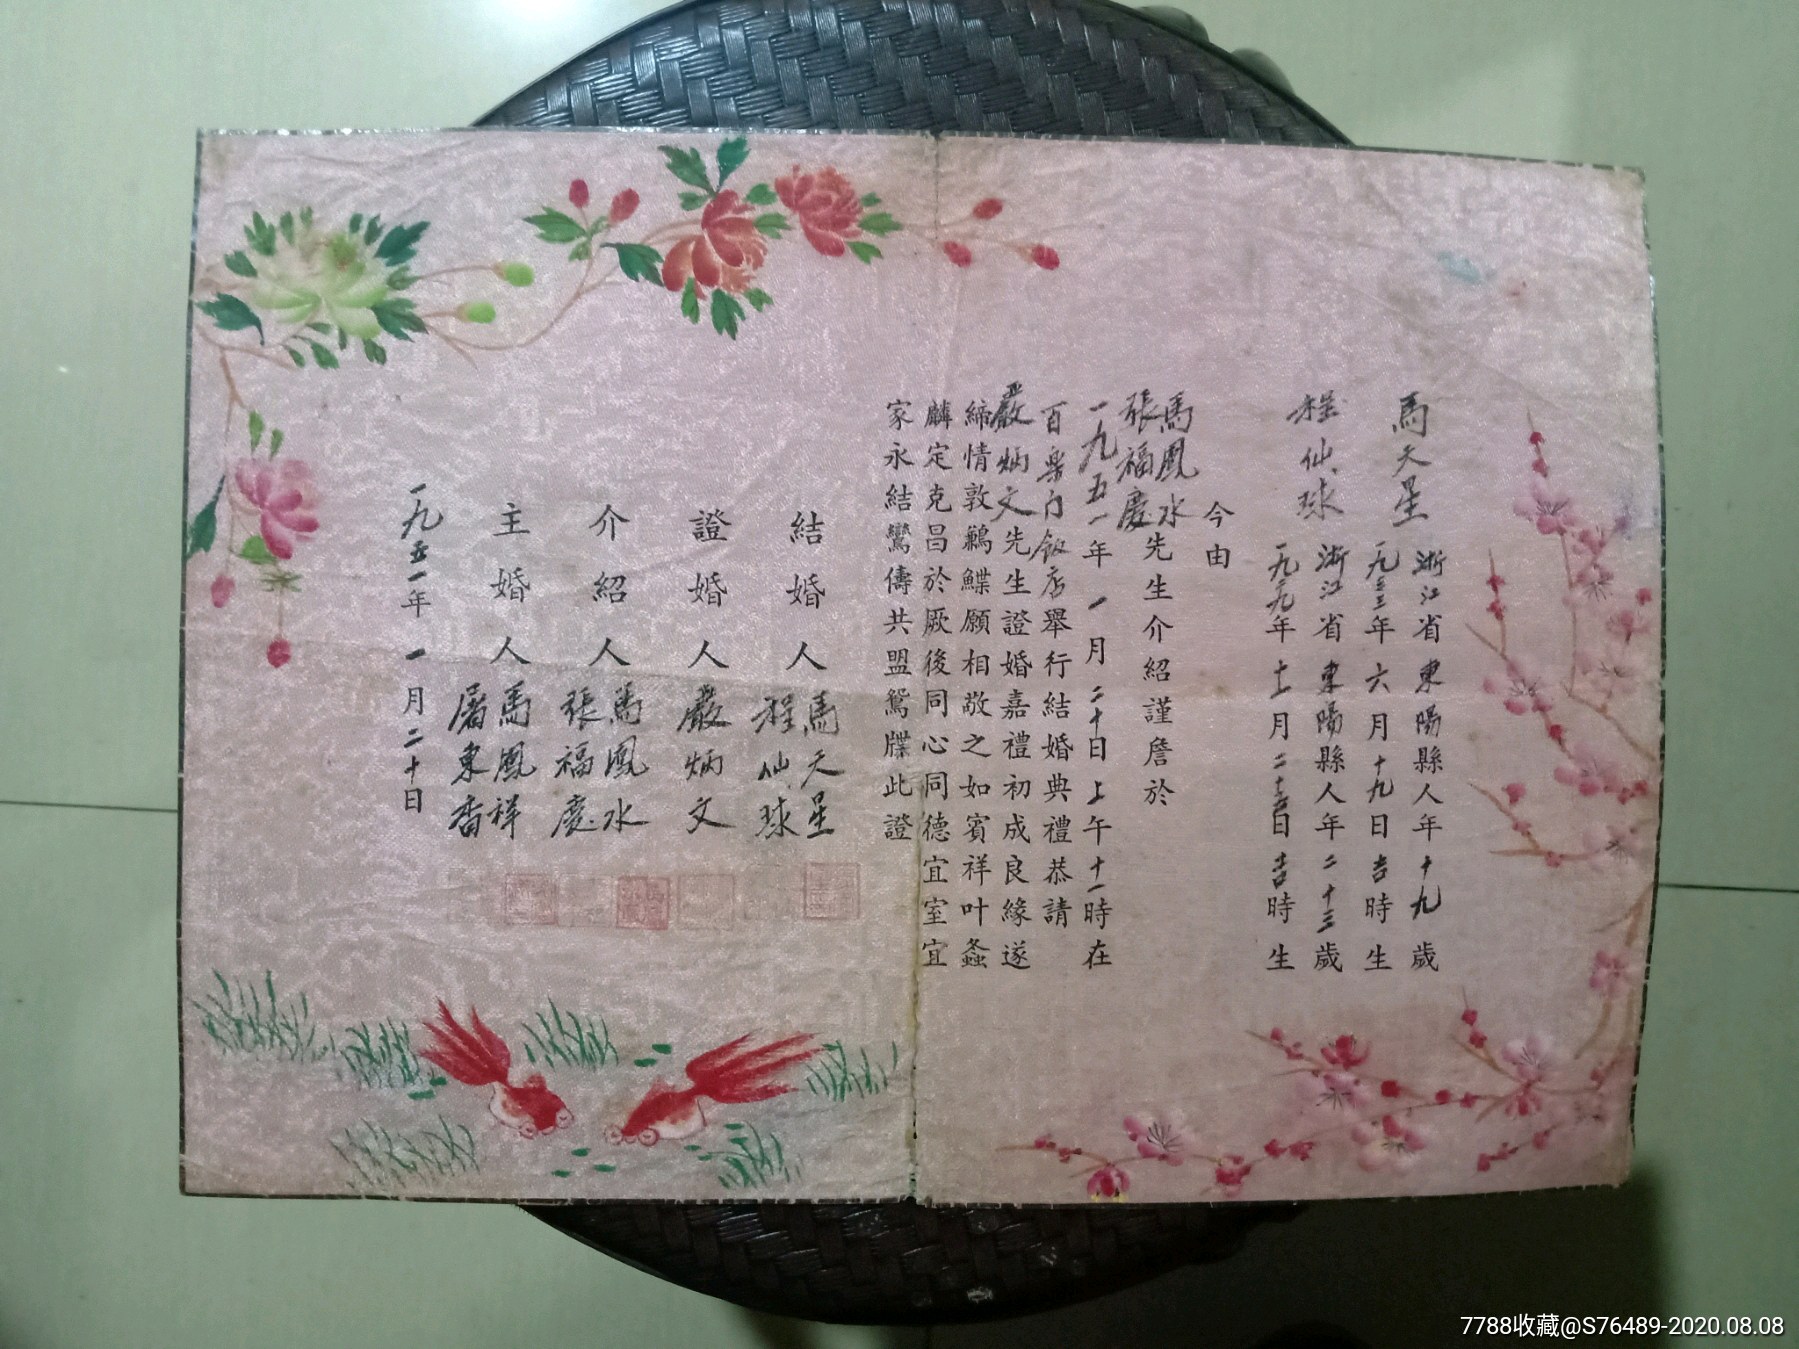 馬天星 浙江省東陽縣人年十九歲
一九三三年六月十九日吉時生
程仙球 浙江省東陽縣人年二十三歲
一九二九年十一月二十六日吉時生
今由
馬鳳水
張福慶先生介紹謹詹於
一九五一年一月二十日上午十一時在
百樂門飯店舉行結婚典禮恭請
嚴炳文先生證婚嘉禮初成良緣遂
締情敦鶼鰈願相敬之如賓祥叶螽
麟定克昌於厥後同心同德宜室宜
家永結鸞儔共盟鴛牒此證
結婚人 馬天星
程仙球
證婚人 嚴炳文
介紹人 馬鳳水
張福慶
主婚人 馬鳳祥
屠東香
一九五一年一月二十日
7788收藏@S76489-2020.08.08